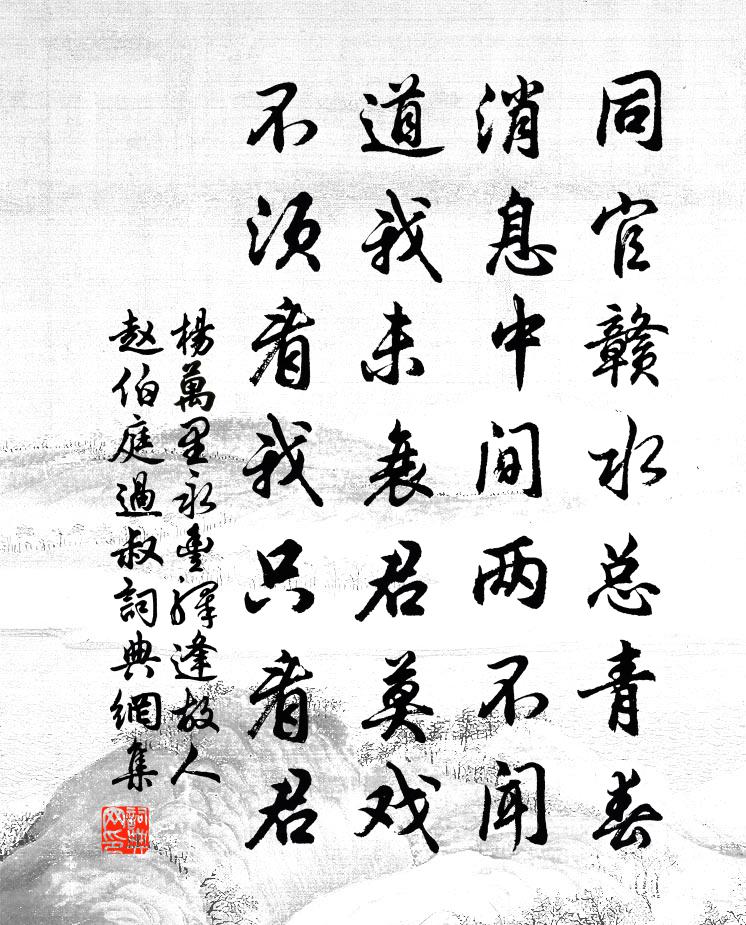 同官赣水总青春
消息中间两不闻
道我未衰君莫戏
不须看我只看君
杨萬里永豊驿逢故人
赵伯庭過叔詞典網集
詞典
网